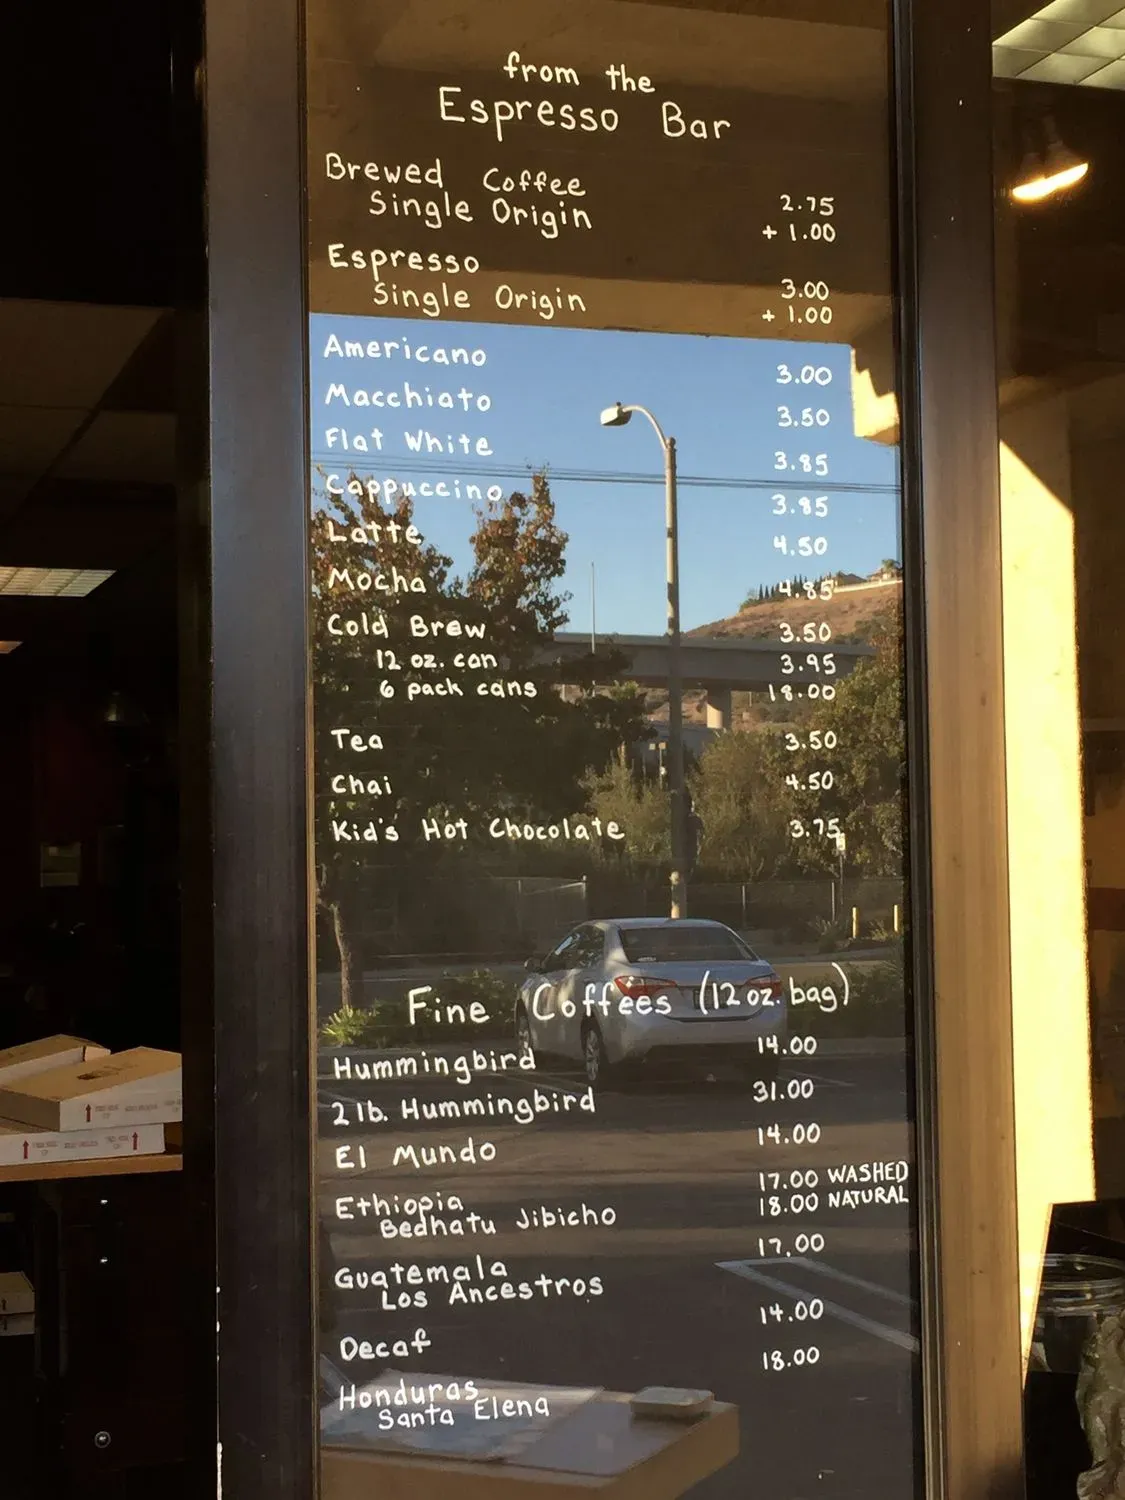 from the
Espresso Bar
Brewed Coffee 2.75
Single Origin + 1.00
Espresso 3.00
Single Origin + 1.00
Americano 3.00
Macchiato 3.50
Flat White 3.85
Cappuccino 3.85
Latte 4.50
Mocha 4.85
Cold Brew 3.50
12 oz. can 3.95
6 pack cans 18.00
Tea 3.50
Chai 4.50
Kid's Hot Chocolate 3.75
Fine Coffees (12 oz. bag)
Hummingbird 14.00
2 lb. Hummingbird 31.00
El Mundo 14.00
Ethiopia 17.00 WASHED
Bedhatu Jibicho 18.00 NATURAL
Guatemala 17.00
Los Ancestros
Decaf 14.00
Honduras 18.00
Santa Elena